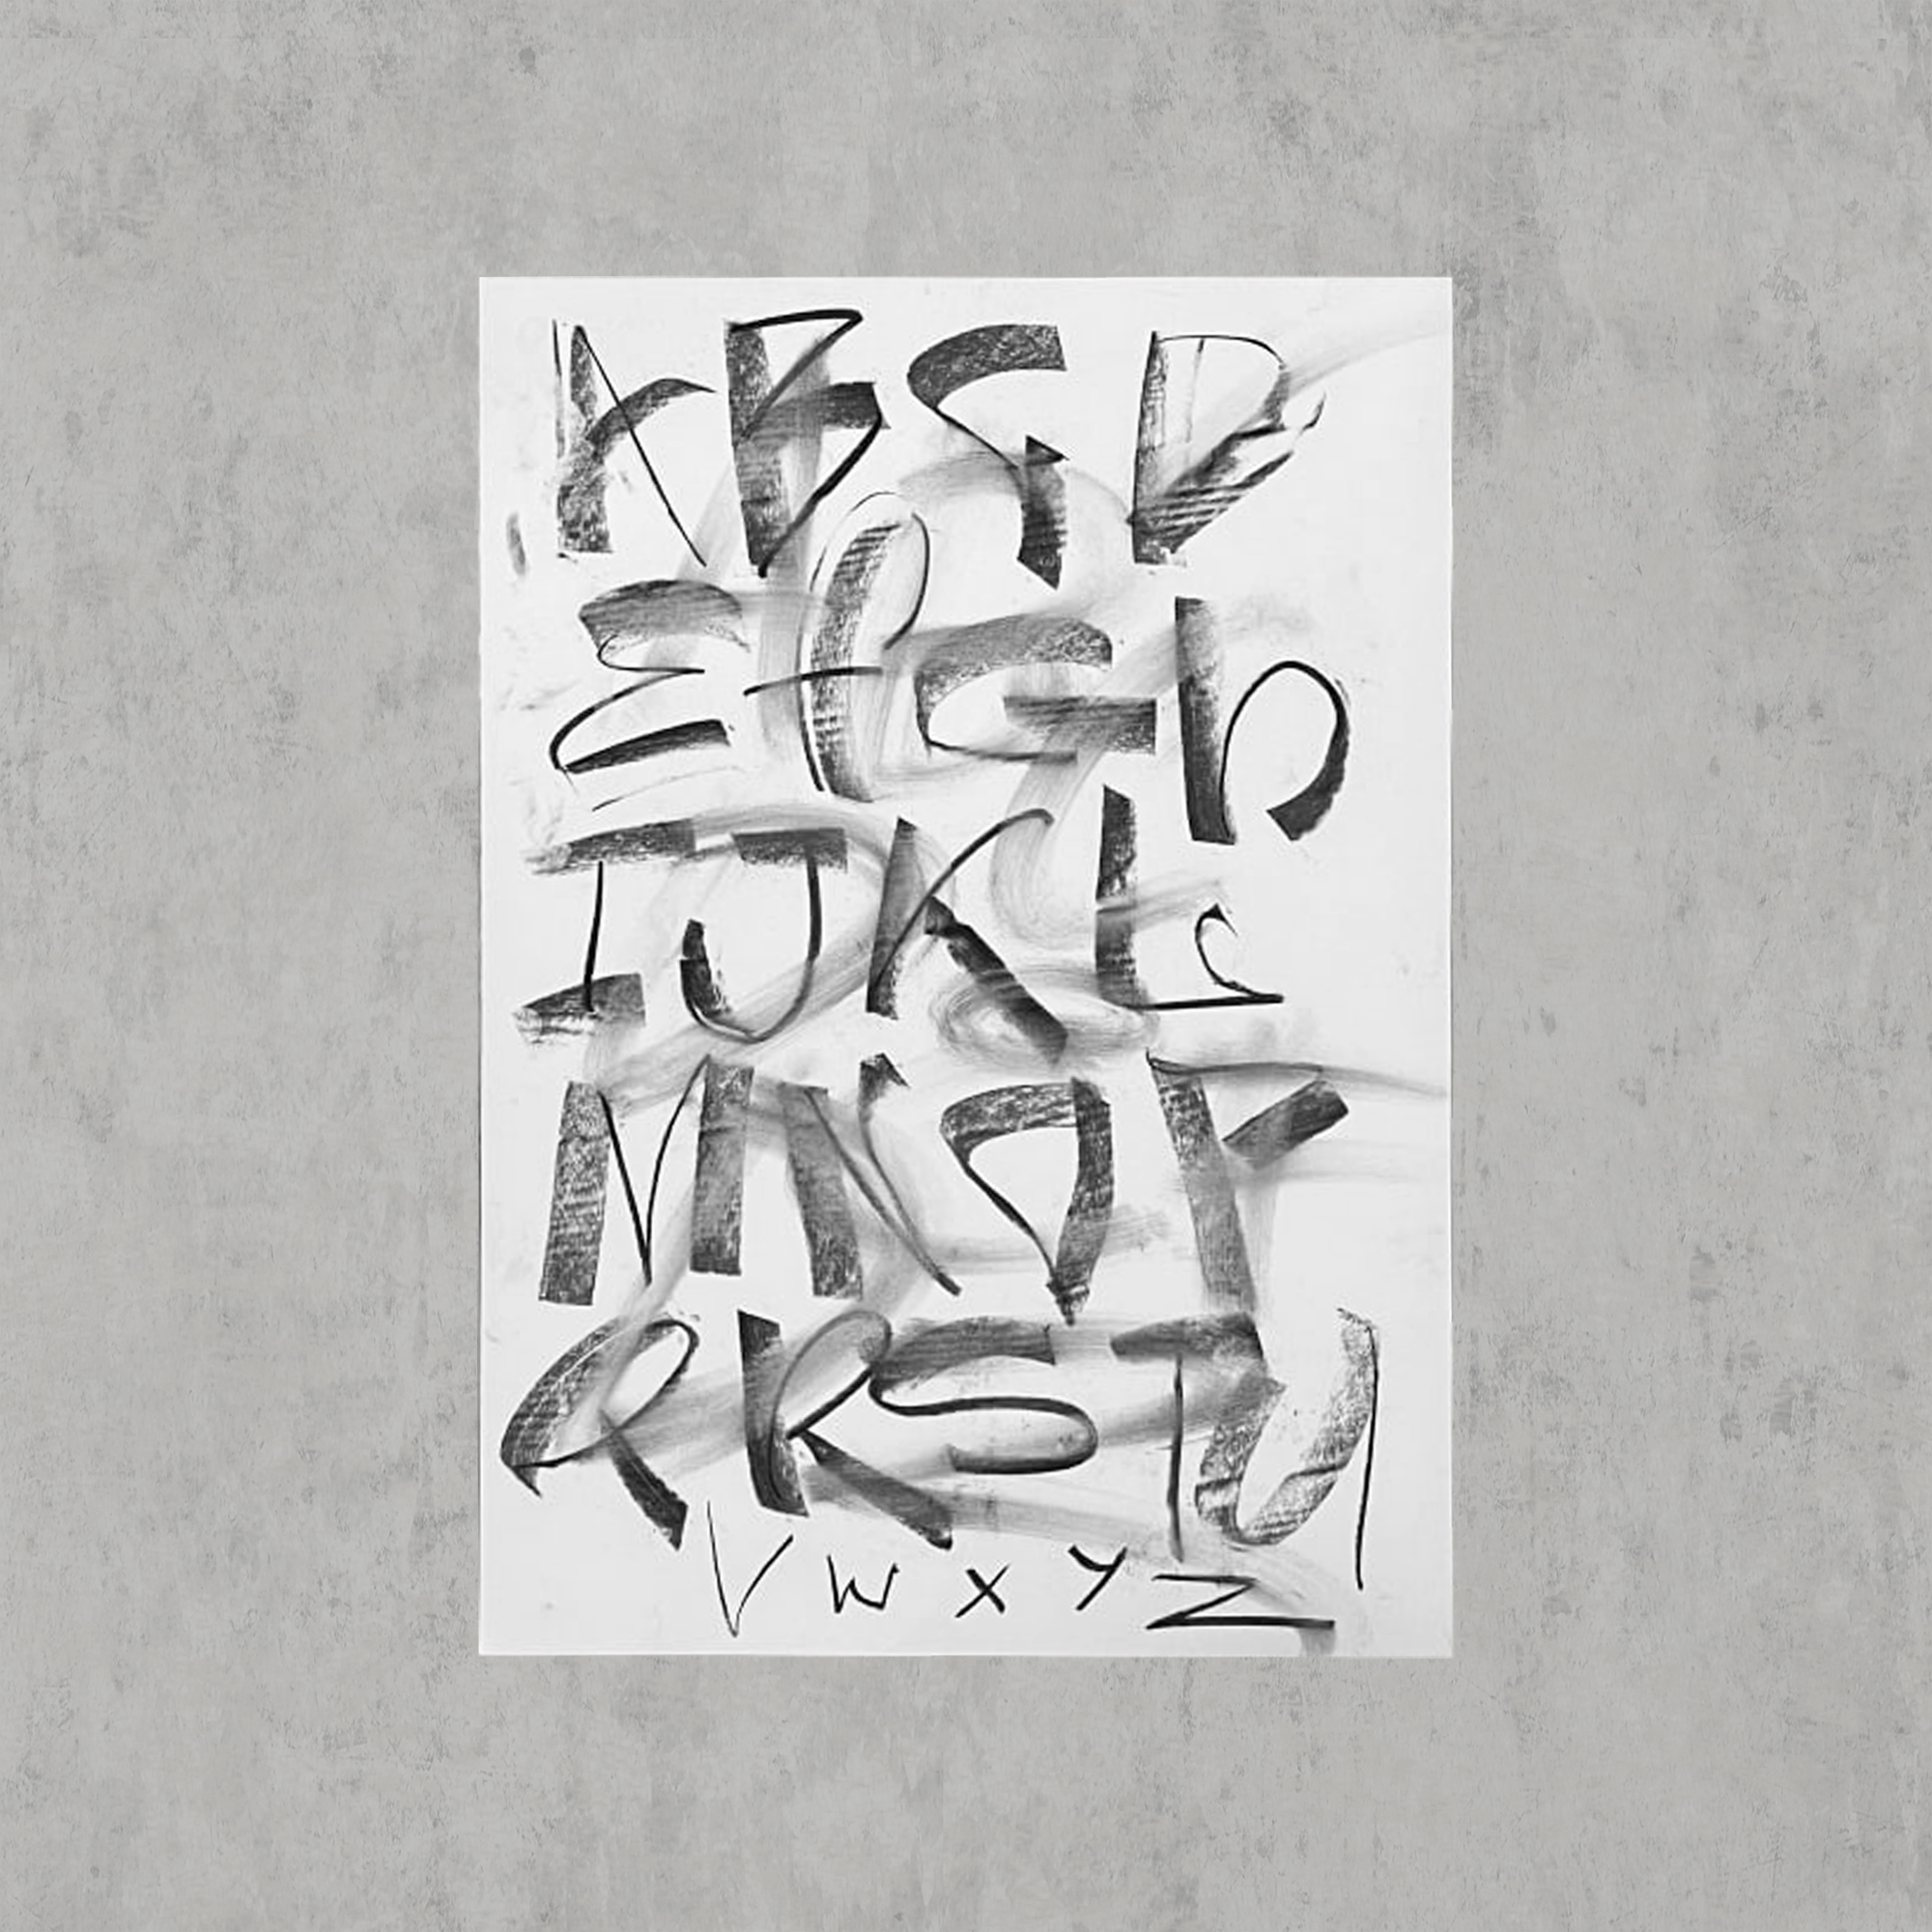 A B C D
E f G h
I J K L
M N O P
Q R S T U
V W X Y Z